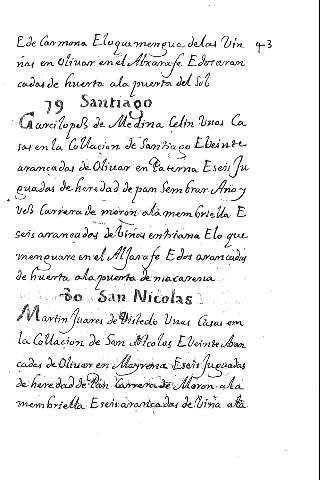 E de Carmona E lo que mengua de las Vin 43
ñas en Olivar en el Alxarafe E dos aran
cadas de huerta a la puerta del Sol
79 Santiago
Garcilopeβ de Medina Celin Unas Ca
sas en la Collacion de Santiago E veinte
arancadas de Olivar en Paterna E seis Ju
guadas de heredad de pan Sembrar Año y
veβ Carrera de moron a la membrilla E
seis arancadas de Viñas en triana E lo que
menguare en el Aljarafe E dos arancadas
de huerta a la puerta de macarena
80 San Nicolas
Martin Juares de Unas Casas em
la Collacion de San Nicolas E Veinte Aran
cadas de Olivar en Mayrena E seis Juguadas
de heredad de Pan Carrera de Moron a la
membrilla E seis arancadas de Viña a la